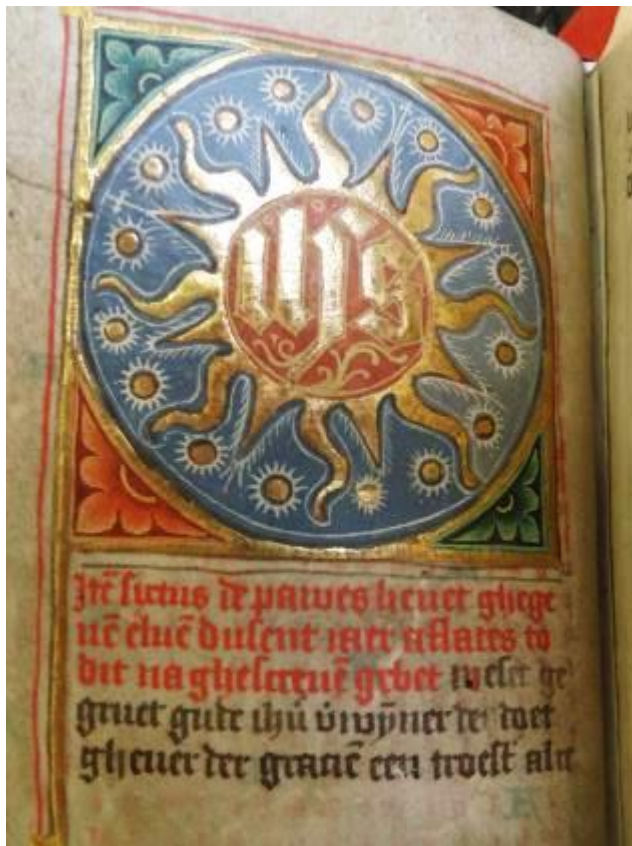 yhs
Itē sixtus de pawes heuet ghege
uē eluē dusent iaer aflates to
dit na ghescreuē gebet weset ge
gruet gude ihū
gheuer der graciē een troest alre